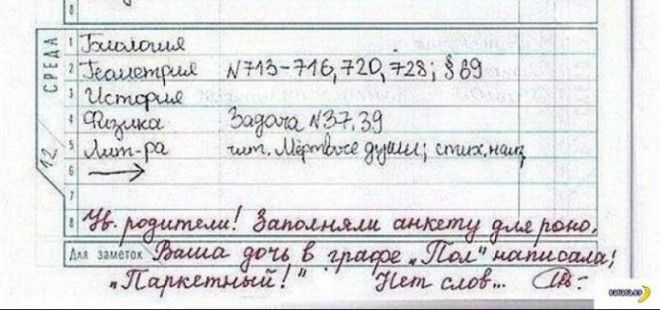 8
СРЕДА
12
1 Биология
2 Геометрия N713-716, 720, 728; § 69
3 История
4 Физика Задача N37, 39
5 Лит-ра чит. Мёртвые души; стих. наиз
6 →
7
8 Ув. родители! Заполняли анкету для роно,
Для заметок Ваша дочь в графе „Пол" написала:
„Паркетный!" Нет слов...